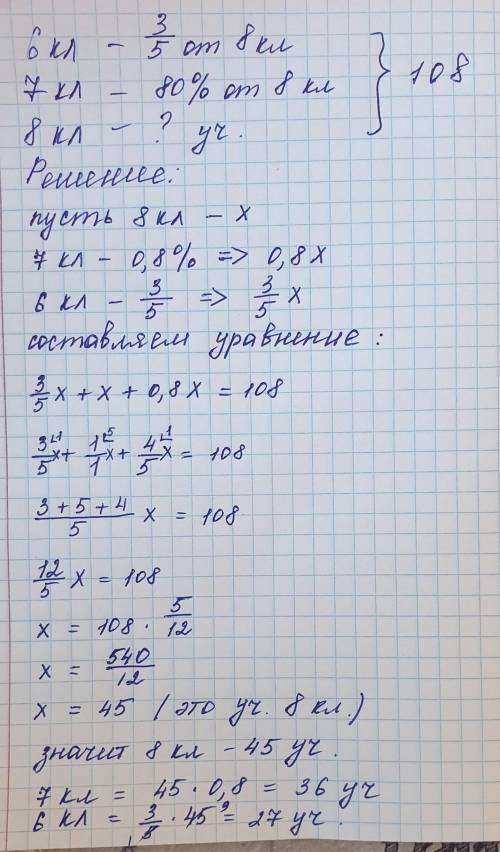 6 кл – 3/5 от 8 кл
7 кл – 80% от 8 кл } 108
8 кл – ? уч.
Решение:
пусть 8 кл – x
7 кл – 0,8% => 0,8x
6 кл – 3/5 => 3/5 x
составляем уравнение:
3/5 x + x + 0,8x = 108
3/5 ⌊1 x + 1/1 ⌊5 x + 4/5 ⌊1 x = 108
(3+5+4)/5 x = 108
12/5 x = 108
x = 108 · 5/12
x = 540/12
x = 45 (это уч. 8 кл.)
значит 8 кл – 45 уч.
7 кл = 45 · 0,8 = 36 уч
6 кл = 3/5 · 45 9 = 27 уч.